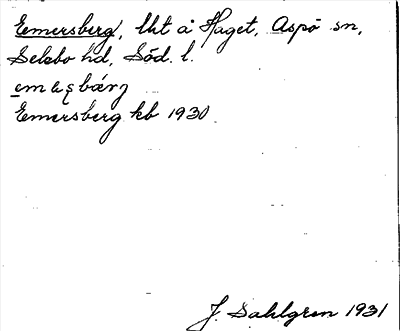 Eemersberg, lht å Haget, Aspö sn,
Selebo hd, Söd. l.
Eemersberg kb 1930
J. Sahlgren 1931